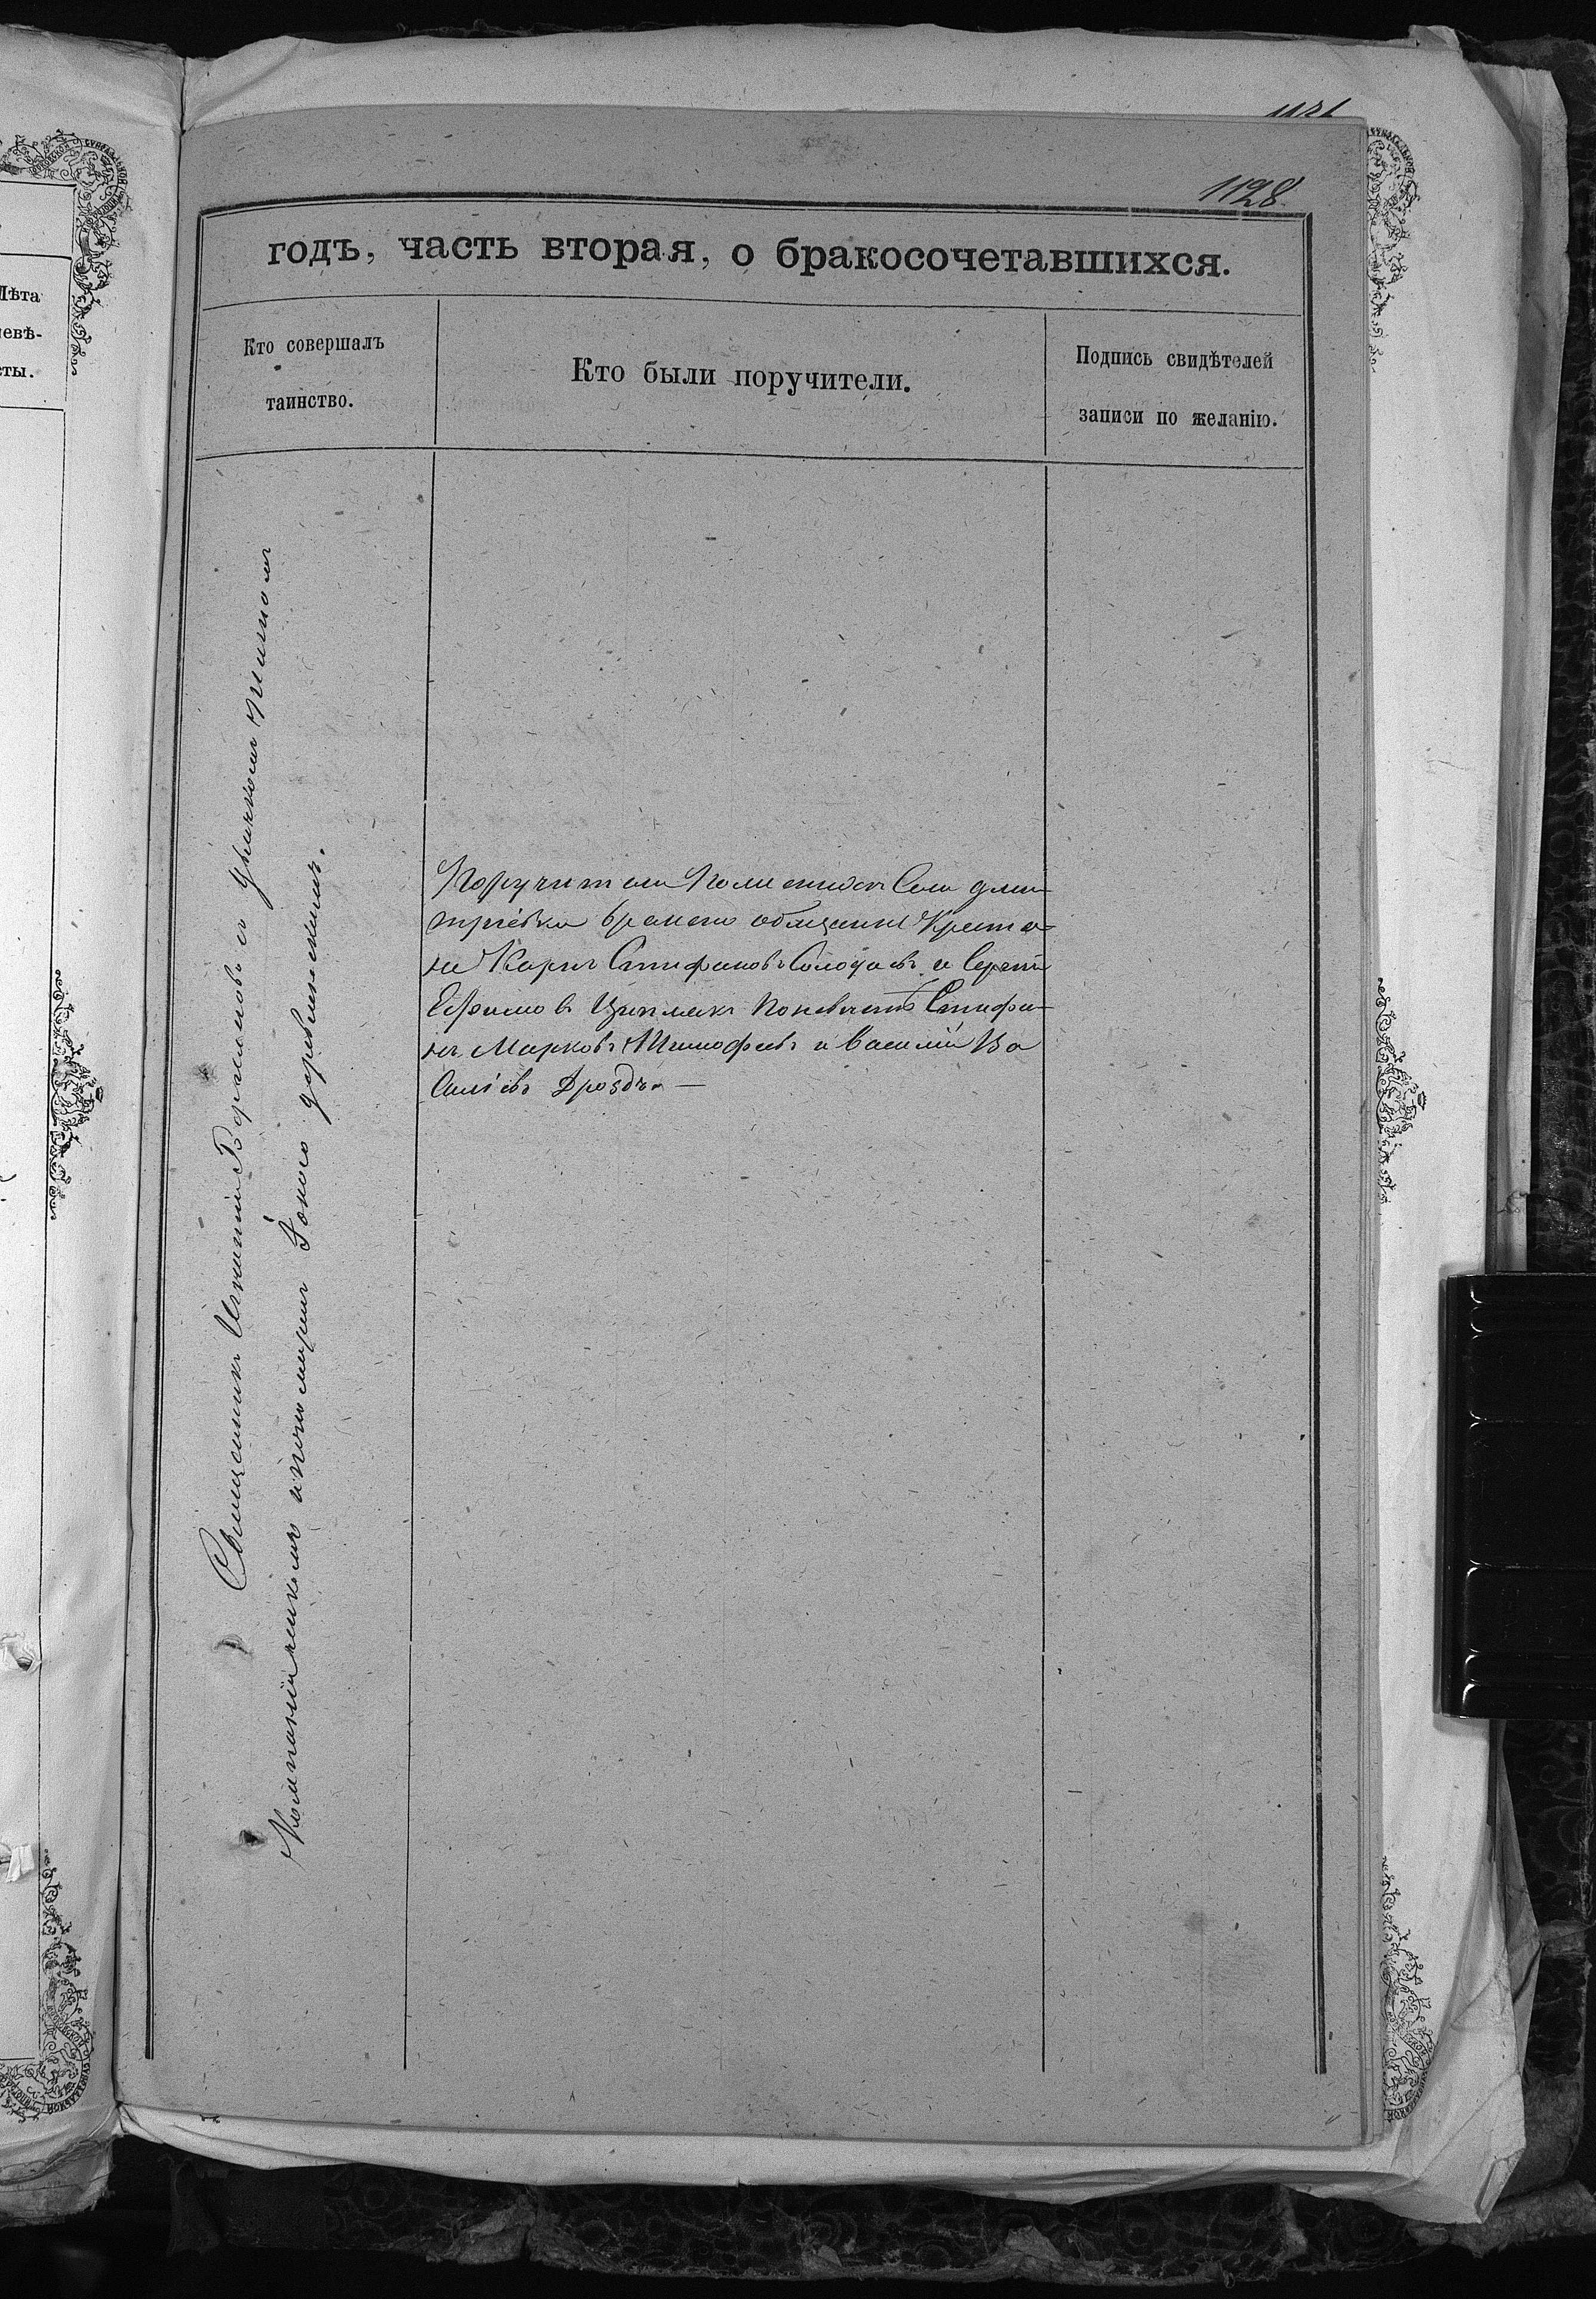 1128
годъ, часть вторая, о бракосочетавшихся.
Лѣта
невѣ-
сты.
Кто совершалъ
таинство.
Кто были поручители.
Подпись свидѣтелей
записи по желанію.
Священникъ Игнатій с
дьячкомъ
и пономаремъ
Поручители По женихѣ Села Дми-
тріевки временно обязанные Кресть-
не Карпъ Стефановъ Солодовъ и Сергѣй
Ефимовъ по невѣстѣ Стефа-
нъ Марковъ Тимофеевъ и Василій Ва
силіевъ Дроздъ. —